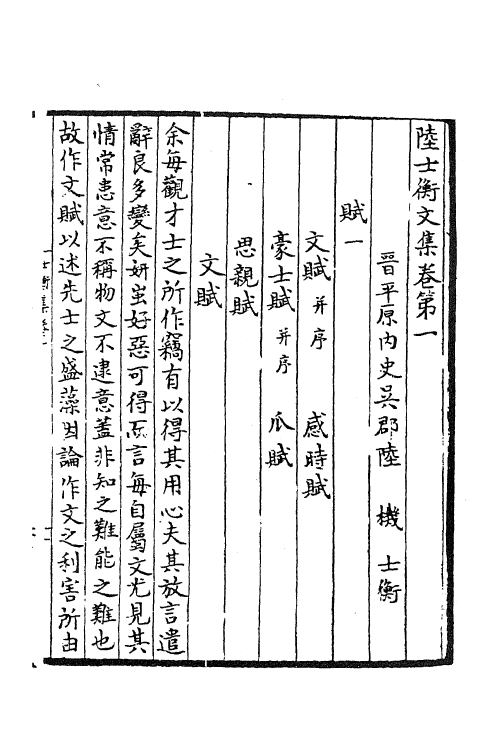 陸士衡文集卷第一
晉平原内史吳郡陸 機 士衡
賦一
文賦并序 感時賦
豪士賦并序 瓜賦
思親賦
文賦
余每觀才士之所作竊有以得其用心夫其放言遣
辭良多變矣妍蚩好惡可得而言每自屬文尤見其
情常患意不稱物文不逮意蓋非知之難能之難也
故作文賦以述先士之盛藻因論作文之利害所由
士衡集卷一